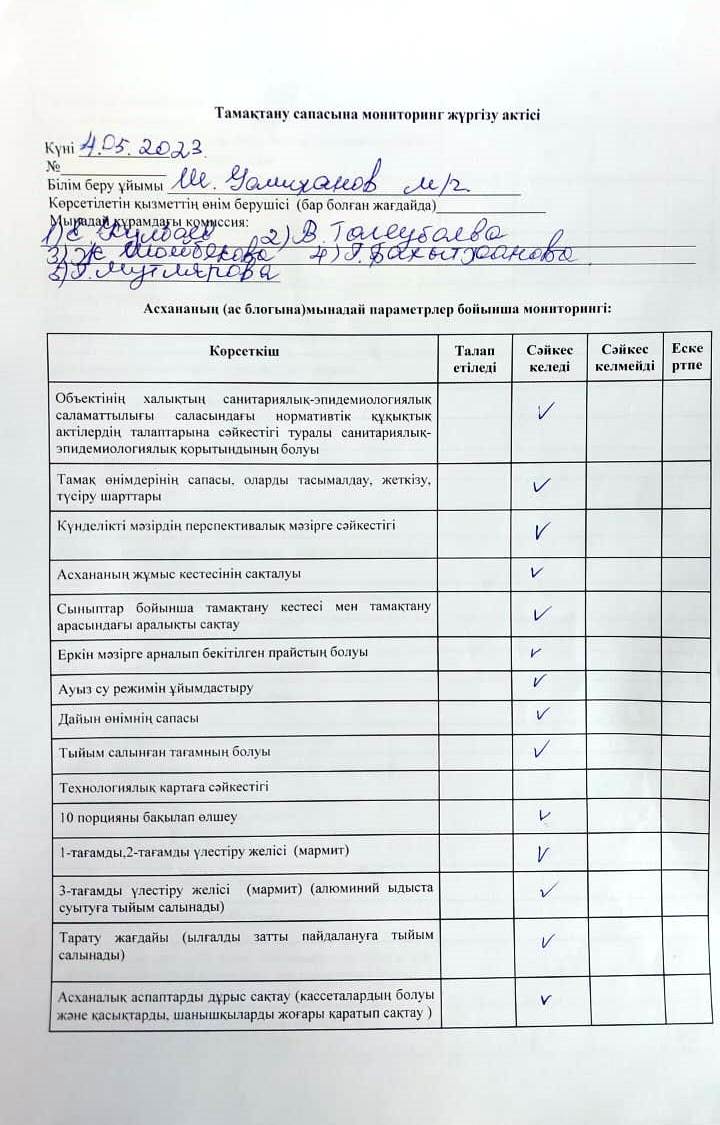 Тамақтану сапасына мониторинг жүргізу актісі
Күні 4.05. 2023
№
Білім беру ұйымы Ш. Уалиханов м/г.
Көрсетілетін қызметтің өнім берушісі (бар болған жағдайда)
Мынадай құрамдағы комиссия:
1) 2) В. Толеубаева
3) Ж 4) Г. Бахытжанова
5) Г. Мутлярова
Асхананың (ас блогына)мынадай параметрлер бойынша мониторингі:
Көрсеткіш Талап Сәйкес Сәйкес Еске
етіледі келеді келмейді ртпе
Объектінің халықтың санитариялық-эпидемиологиялық
саламаттылығы саласындағы нормативтік құқықтық
актілердің талаптарына сәйкестігі туралы санитариялық-
эпидемиологиялық қорытындының болуы
Тамақ өнімдерінің сапасы, оларды тасымалдау, жеткізу,
түсіру шарттары
Күнделікті мәзірдің перспективалық мәзірге сәйкестігі
Асхананың жұмыс кестесінің сақталуы
Сыныптар бойынша тамақтану кестесі мен тамақтану
арасындағы аралықты сақтау
Еркін мәзірге арналып бекітілген прайстың болуы
Ауыз су режимін ұйымдастыру
Дайын өнімнің сапасы
Тыйым салынған тағамның болуы
Технологиялық картаға сәйкестігі
10 порцияны бақылап өлшеу
1-тағамды,2-тағамды үлестіру желісі (мармит)
3-тағамды үлестіру желісі (мармит) (алюминий ыдыста
суытуға тыйым салынады)
Тарату жағдайы (ылғалды затты пайдалануға тыйым
салынады)
Асханалық аспаптарды дұрыс сақтау (кассеталардың болуы
және қасықтарды, шанышқыларды жоғары қаратып сақтау )